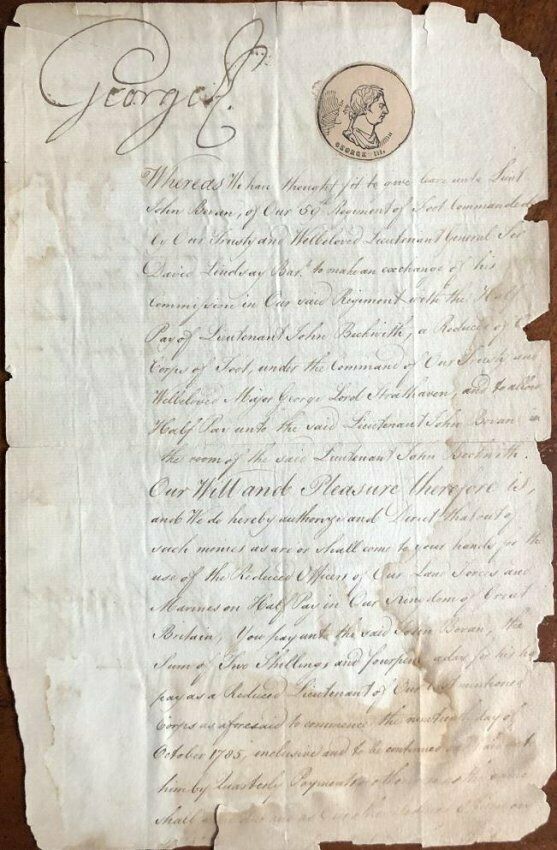 George R.
GEORGE III.
Whereas We have thought fit to give leave unto Lieut.
John Bevan, of Our 59th Regiment of Foot Commanded
by Our Trusty and Welbeloved Lieutenant General Sir
David Lindsay Bart. to make an exchange of his
Commission in Our said Regiment with the Half
Pay of Lieutenant John Beckwith, a Reduced
Corps of Foot, under the Command of Our Trusty and
Welbeloved Major George Lord Strathaven, and to allow
Half Pay unto the said Lieutenant John Bevan in
the room of the said Lieutenant John Beckwith.
Our Will and Pleasure therefore is,
and We do hereby authorize and Direct that out of
such monies as are or shall come to your hands for the
use of the Reduced Officers of Our Land Forces and
Marines on Half Pay in Our Kingdom of Great
Britain, You pay unto the said John Bevan, the
Sum of Two Shillings and fourpence a day for his
pay as a Reduced Lieutenant of Our mentioned
Corps as aforesaid to commence the day of
October 1785, inclusive and to be continued unto
him by Quarterly Payments as the same
shall are as Our other